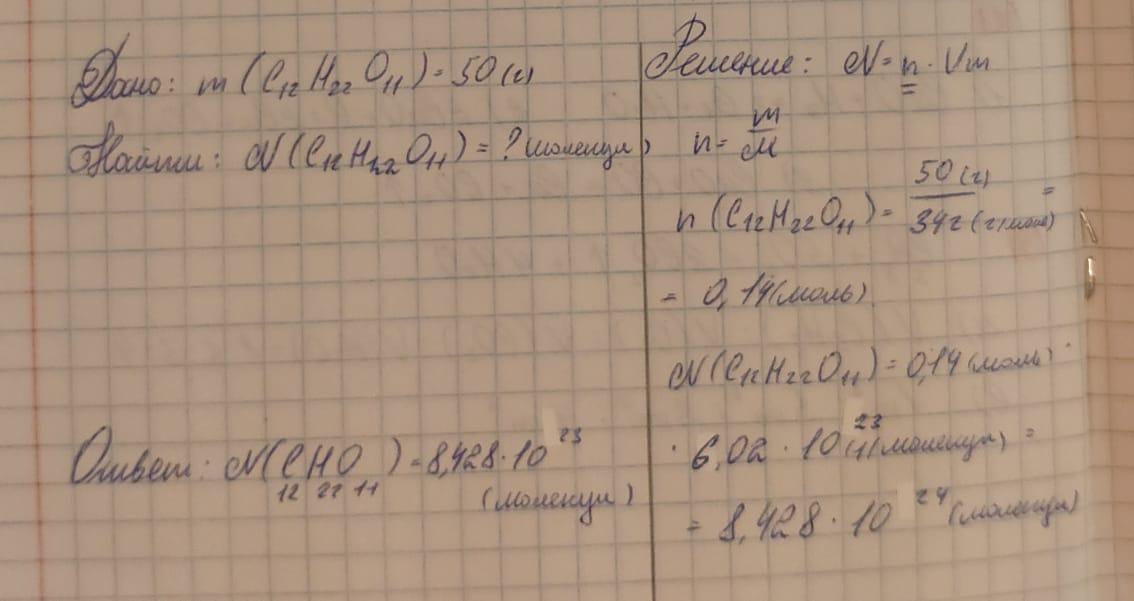 Дано: m (C₁₂H₂₂O₁₁) = 50 (г)
Найти: N (C₁₂H₂₂O₁₁) = ? (молекул)
Ответ: N(CHO) = 8,428 · 10²³
12 22 11
(молекул)
Решение: N = n · Vm
n = m/M
n (C₁₂H₂₂O₁₁) = 50 (г) / 342 (г/моль) =
= 0,14 (моль)
N (C₁₂H₂₂O₁₁) = 0,14 (моль) ·
· 6,02 · 10²³ (молекул) =
= 8,428 · 10²⁴ (молекул)